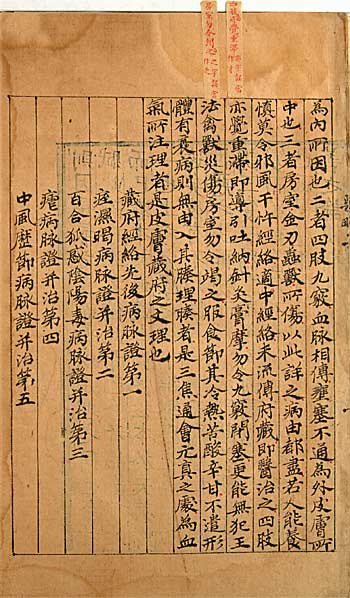 為內所因也二者四肢九竅血脉相傳壅塞不通為外皮膚所
中也三者房室金刃蟲獸所傷以此詳之病由都盡若人能養
慎莫令邪風干忤經絡適中經絡未流傳府藏即醫治之四肢
亦覺重滯即導引吐納針灸膏摩勿令九竅閉塞更能無犯王
法禽獸災傷房室勿令竭之服食節其冷熱苦酸辛甘不遣形
體有衰病則無由入其腠理腠者是三焦通會元真之處為血
氣所注理者是皮膚藏府之文理也
藏府經絡先後病脉證第一
痓濕暍病脉證并治第二
百合狐惑陰陽毒病脉證并治第三
瘧病脉證并治第四
中風歷節病脉證并治第五